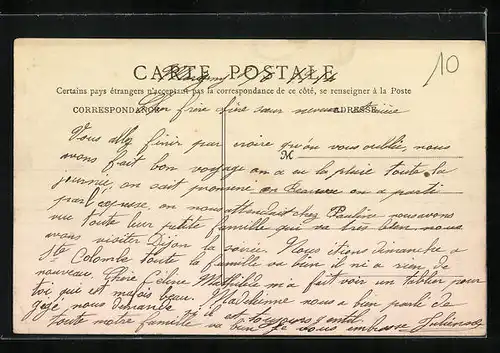 CARTE POSTALE
10
Certains pays étrangers n'acceptant pas la correspondance de ce côté, se renseigner à la Poste
CORRESPONDANCE ADRESSE
M
frère sœur
Vous allez finir par croire qu'on vous oublie, nous
avons fait bon voyage on a eu la pluie toute la
journée, on sait promené en on a parti
par l'express, on nous attendait chez Pauline nous avons
vue toute leur petite famille qui va très bien nous
avons visiter Dijon la soirée. Nous étions dimanche a
Ste Colombe toute la famille va bien il ni a rien de
nouveau. Céline Mathilde m'a fait voir un tablier pour
toi qui est mais beau. Madeleine nous a bien parlé de
gégé nous demande s'il est toujours gentil.
toute notre famille va bien je vous embrasse